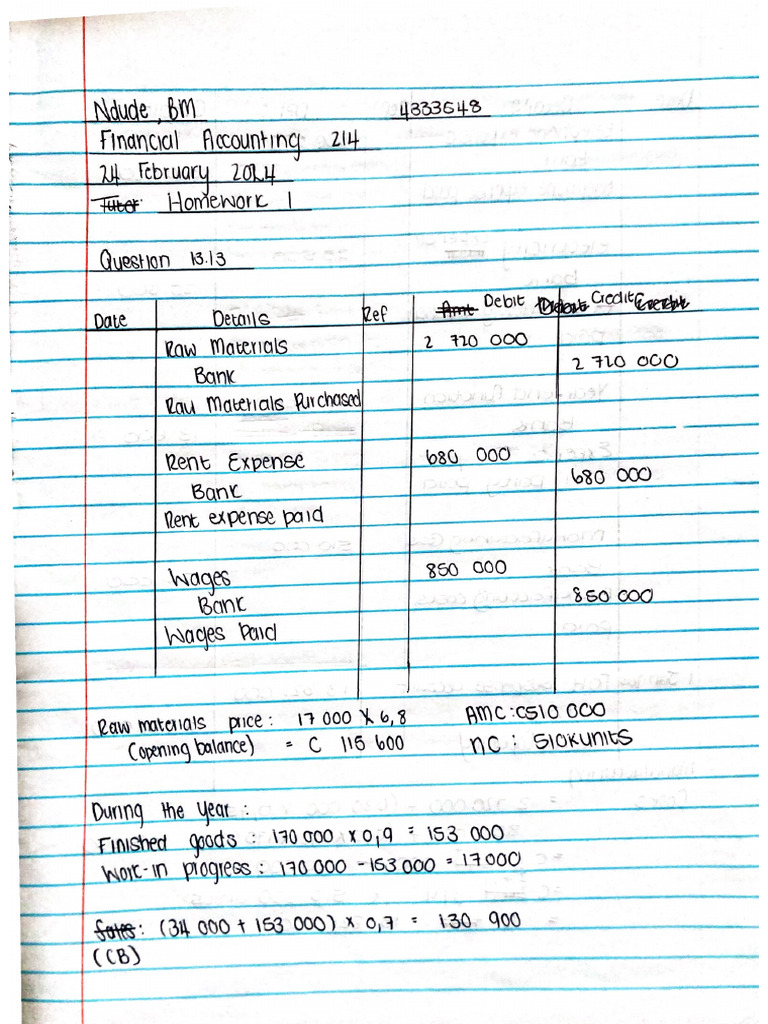 Ndude, BM 4333648
Financial Accounting 214
24 February 2024
Tutor Homework 1
Question 13.13
Date Details Ref Amt Debit Credit
Raw Materials 2 720 000
Bank 2 720 000
Raw Materials Purchased
Rent Expense 680 000
Bank 680 000
Rent expense paid
Wages 850 000
Bank 850 000
Wages Paid
Raw materials price: 17 000 X 6,8 AMC: C510 000
(opening balance) = C 115 600 nc: 510K UNITS
During the Year:
Finished goods: 170 000 x 0,9 = 153 000
Work-in progress: 170 000 - 153 000 = 17000
Sales: (34 000 + 153 000) x 0,7 = 130 900
(CB)